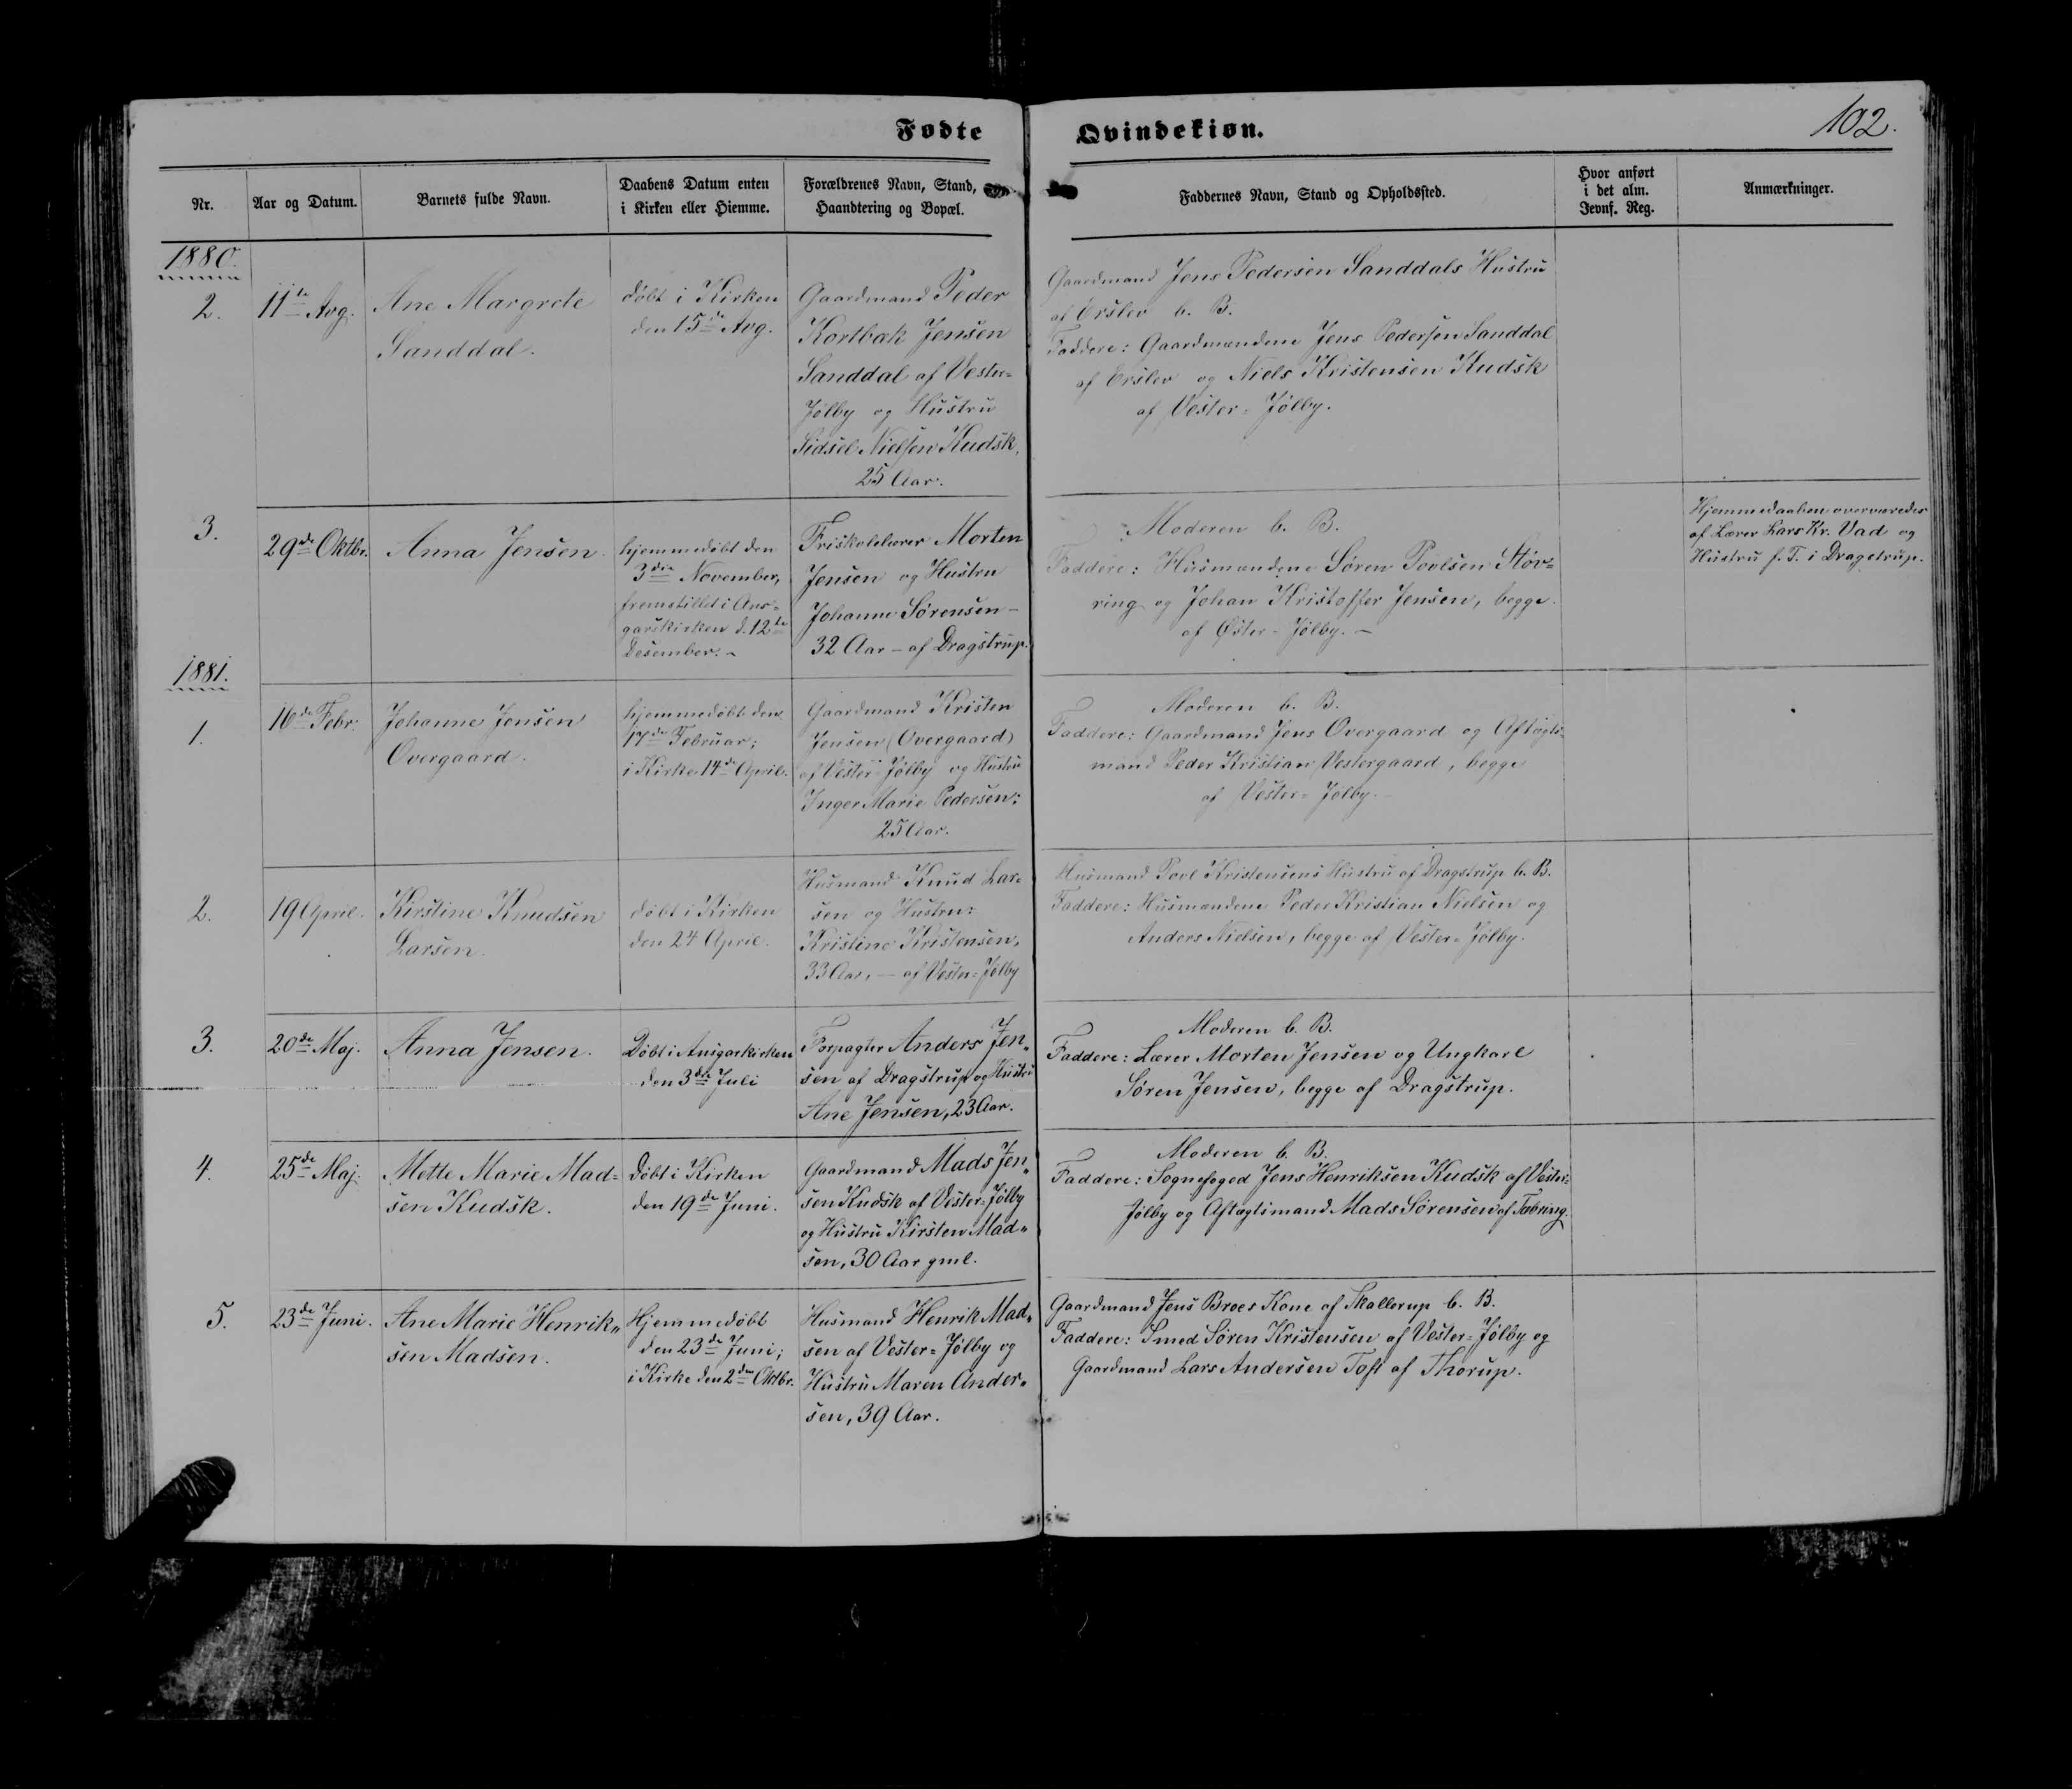 Fødte
Qvindekiøn.
102.
Nr.
Aar og Datum.
Barnets fulde Navn.
Daabens Datum enten
i Kirken eller Hiemme.
Forældrenes Navn, Stand,
Haandtering og Bopæl.
Faddernes Navn, Stand og Opholdssted.
Hvor anført
i det alm.
Jevnf. Reg.
Anmærkninger.
1880.
2.
11te Avg.
Ane Margrete
Sanddal.
døbt i Kirken
den 15de Avg.
Gaardmand Peder
Kortbæk Jensen
Sanddal af Vester-
Jølby og Hustru
Sidsel Nielsen Kudsk,
25 Aar.
Gaardmand Jens Pedersen Sanddals Hustru
af Erslev b. B.
Faddere: Gaardmændene Jens Pedersen Sanddal
af Erslev og Niels Kristensen Kudsk
af Vester=Jølby.
3.
29de Oktbr.
Anna Jensen.
hjemmedøbt den
3die November,
fremstillet i Ans-
garskirken d. 12te
Desember. -
Friskolelærer Morten
Jensen og Hustru
Johanne Sørensen -
32 Aar - af Dragstrup.
Moderen b. B.
Faddere: Husmændene Søren Povlsen Støv=
ring og Johan Kristoffer Jensen, begge
af Øster-Jølby. -
Hjemmedaaben overværedes
af Lærer Lars Kr. Vad og
Hustru f. T. i Dragstrup.
1881.
1.
16de Febr.
Johanne Jensen
Overgaard.
hjemmedøbt den
17de Februar;
i Kirke 14de April.
Gaardmand Kristen
Jensen (Overgaard)
af Vester=Jølby og Hustru
Inger Marie Pedersen:
25 Aar.
Moderen b. B.
Faddere: Gaardmand Jens Overgaard og Aftægts-
mand Peder Kristian Vestergaard, begge
af Vester=Jølby.
2.
19 April.
Kirstine Knudsen
Larsen.
døbt i Kirken
den 24 April.
Husmand Knud Lar=
sen og Hustru:
Kristine Kristensen,
33 Aar, - af Vester=Jølby
Husmand Povl Kristensens Hustru af Dragstrup b. B.
Faddere: Husmændene Peder Kristian Nielsen og
Anders Nielsen, begge af Vester=Jølby.
3.
20de Maj.
Anna Jensen.
Døbt i Ansgarkirken
den 3die Juli
Forpagter Anders Jen„
sen af Dragstrup og Hustru
Ane Jensen, 23 Aar.
Moderen b. B.
Faddere: Lærer Morten Jensen og Ungkarl
Søren Jensen, begge af Dragstrup.
4.
25de Maj.
Mette Marie Mad=
sen Kudsk.
Døbt i Kirken
den 19de Juni.
Gaardmand Mads Jen„
sen Kudsk af Vester=Jølby
og Hustru Kirsten Mad„
sen, 30 Aar gml.
Moderen b. B.
Faddere: Sognefoged Jens Henriksen Kudsk af Vester=
Jølby og Aftægtsmand Mads Sørensen af Tæbring.
5.
23de Juni.
Ane Marie Henrik„
sen Madsen.
Hjemmedøbt
den 23de Juni;
i Kirke den 2den Oktbr.
Husmand Henrik Mad„
sen af Vester=Jølby og
Hustru Maren Ander„
sen, 39 Aar.
Gaardmand Jens Broes Kone af Skallerup b. B.
Faddere: Smed Søren Kristensen af Vester=Jølby og
Gaardmand Lars Andersen Toft af Thorup.